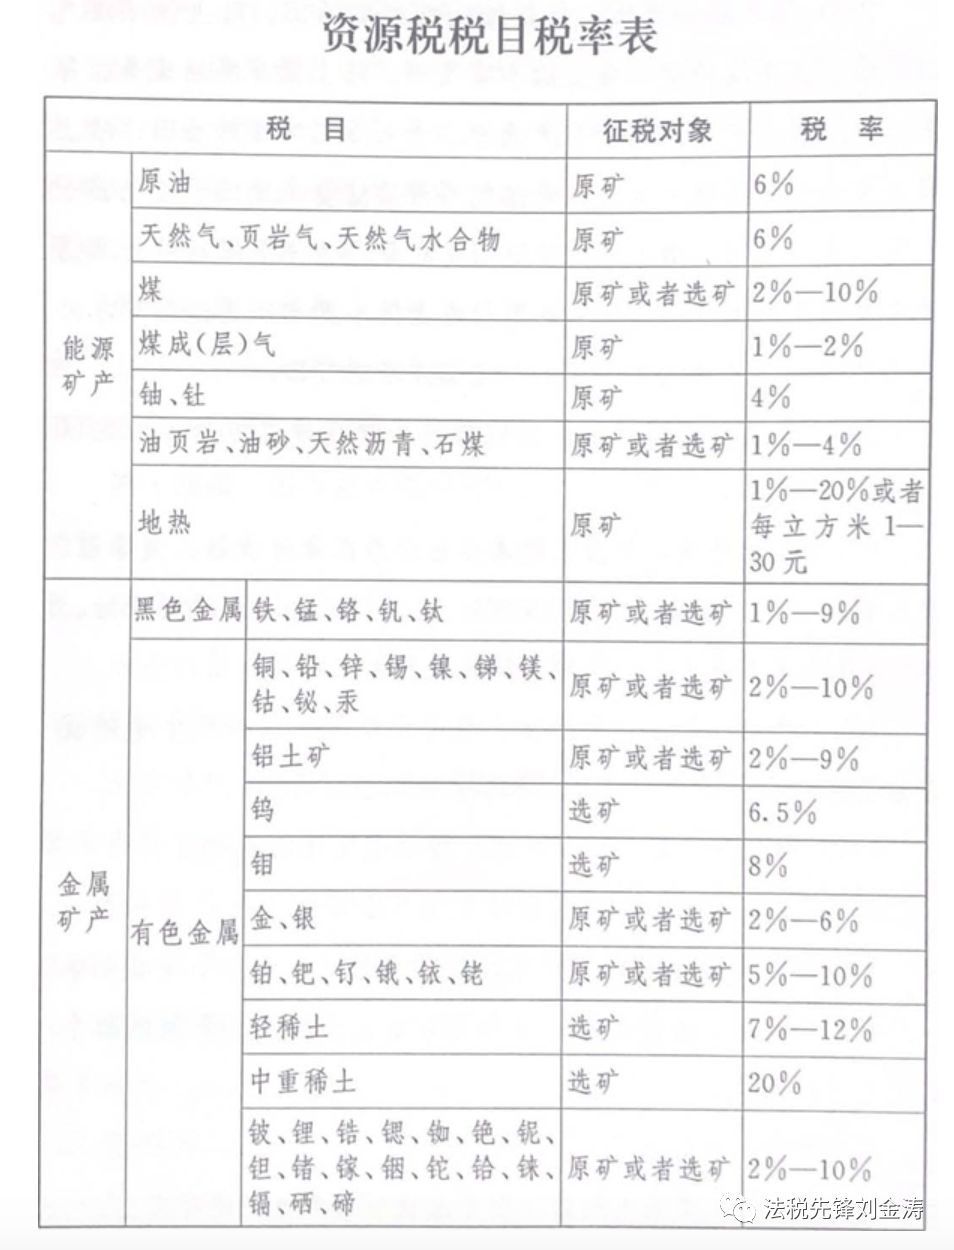 资源税税目税率表
税 目 征税对象 税 率
能源矿产
原油 原矿 6%
天然气、页岩气、天然气水合物 原矿 6%
煤 原矿或者选矿 2%—10%
煤成(层)气 原矿 1%—2%
铀、钍 原矿 4%
油页岩、油砂、天然沥青、石煤 原矿或者选矿 1%—4%
地热 原矿 1%—20%或者
每立方米 1—
30 元
金属矿产
黑色金属 铁、锰、铬、钒、钛 原矿或者选矿 1%—9%
有色金属
铜、铅、锌、锡、镍、锑、镁、
钴、铋、汞 原矿或者选矿 2%—10%
铝土矿 原矿或者选矿 2%—9%
钨 选矿 6.5%
钼 选矿 8%
金、银 原矿或者选矿 2%—6%
铂、钯、钌、锇、铱、铑 原矿或者选矿 5%—10%
轻稀土 选矿 7%—12%
中重稀土 选矿 20%
铍、锂、锆、锶、铷、铯、铌、
钽、锗、镓、铟、铊、铪、铼、
镉、硒、碲 原矿或者选矿 2%—10%
法税先锋刘金涛